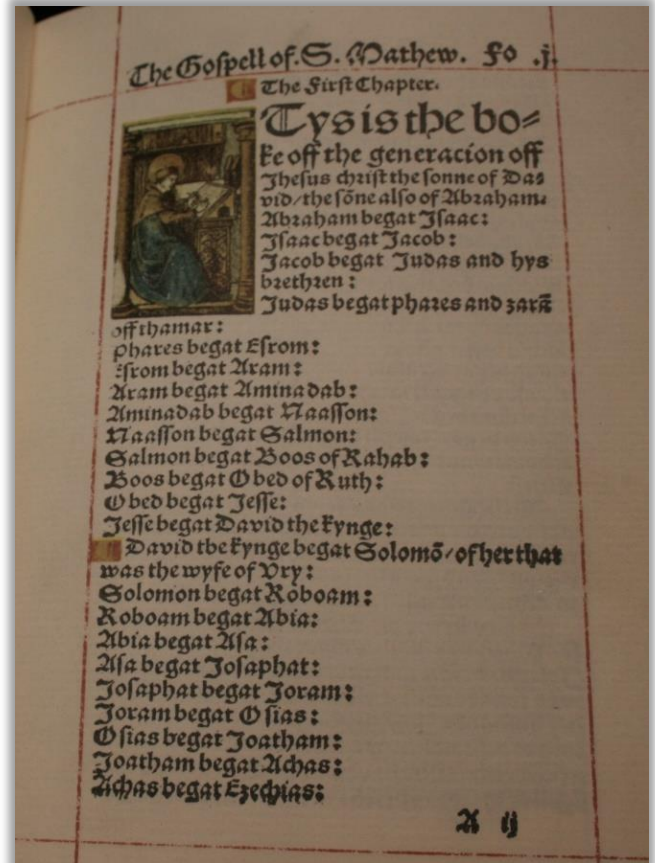 The Gospell of. S. Mathew. Fo .j.
The First Chapter.
Tys is the bo⸗
ke off the generacion off
Jhesus christ the sonne of Da⸗
vid/the sõne also of Abraham.
Abraham begat Isaac:
Isaac begat Jacob:
Jacob begat Judas and hys
brethren:
Judas begat phares and zarã
off thamar:
phares begat Esrom:
Esrom begat Aram:
Aram begat Aminadab:
Aminadab begat Naasson:
Naasson begat Salmon:
Salmon begat Boos of Rahab:
Boos begat Obed of Ruth:
Obed begat Jesse:
Jesse begat David the kynge:
David the kynge begat Solomõ/of her that
was the wyfe of Vry:
Solomon begat Roboam:
Roboam begat Abia:
Abia begat Asa:
Asa begat Josaphat:
Josaphat begat Joram:
Joram begat Osias:
Osias begat Joatham:
Joatham begat Achas:
Achas begat Ezechias:
A ij